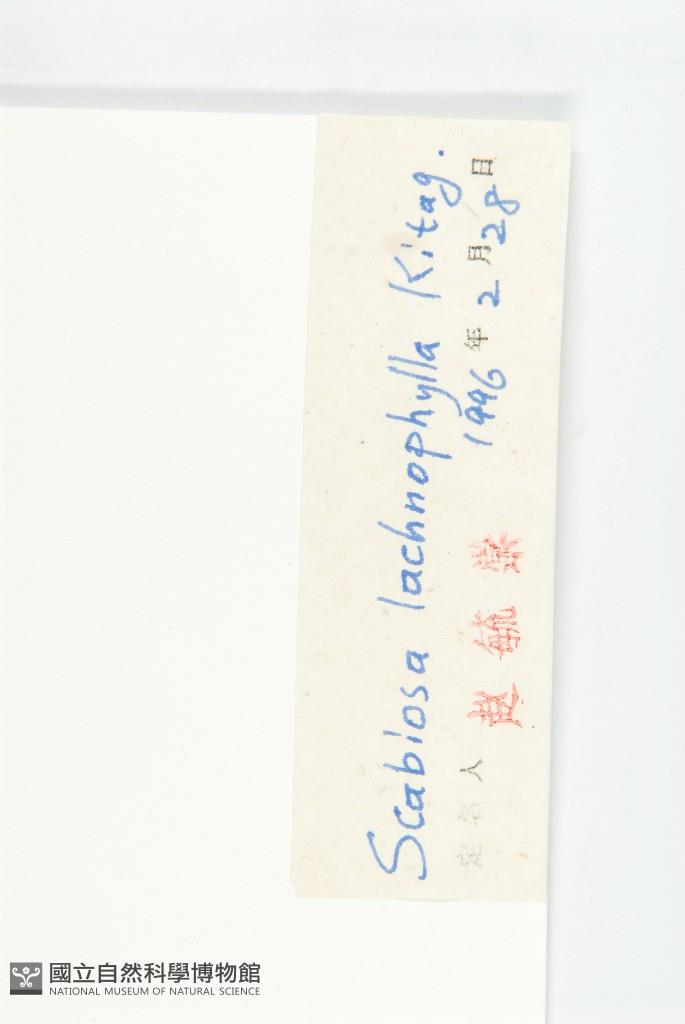 Scabiosa lachnophylla Kitag.
定名人 赵毓棠 1996年2月28日
國立自然科學博物館
NATIONAL MUSEUM OF NATURAL SCIENCE